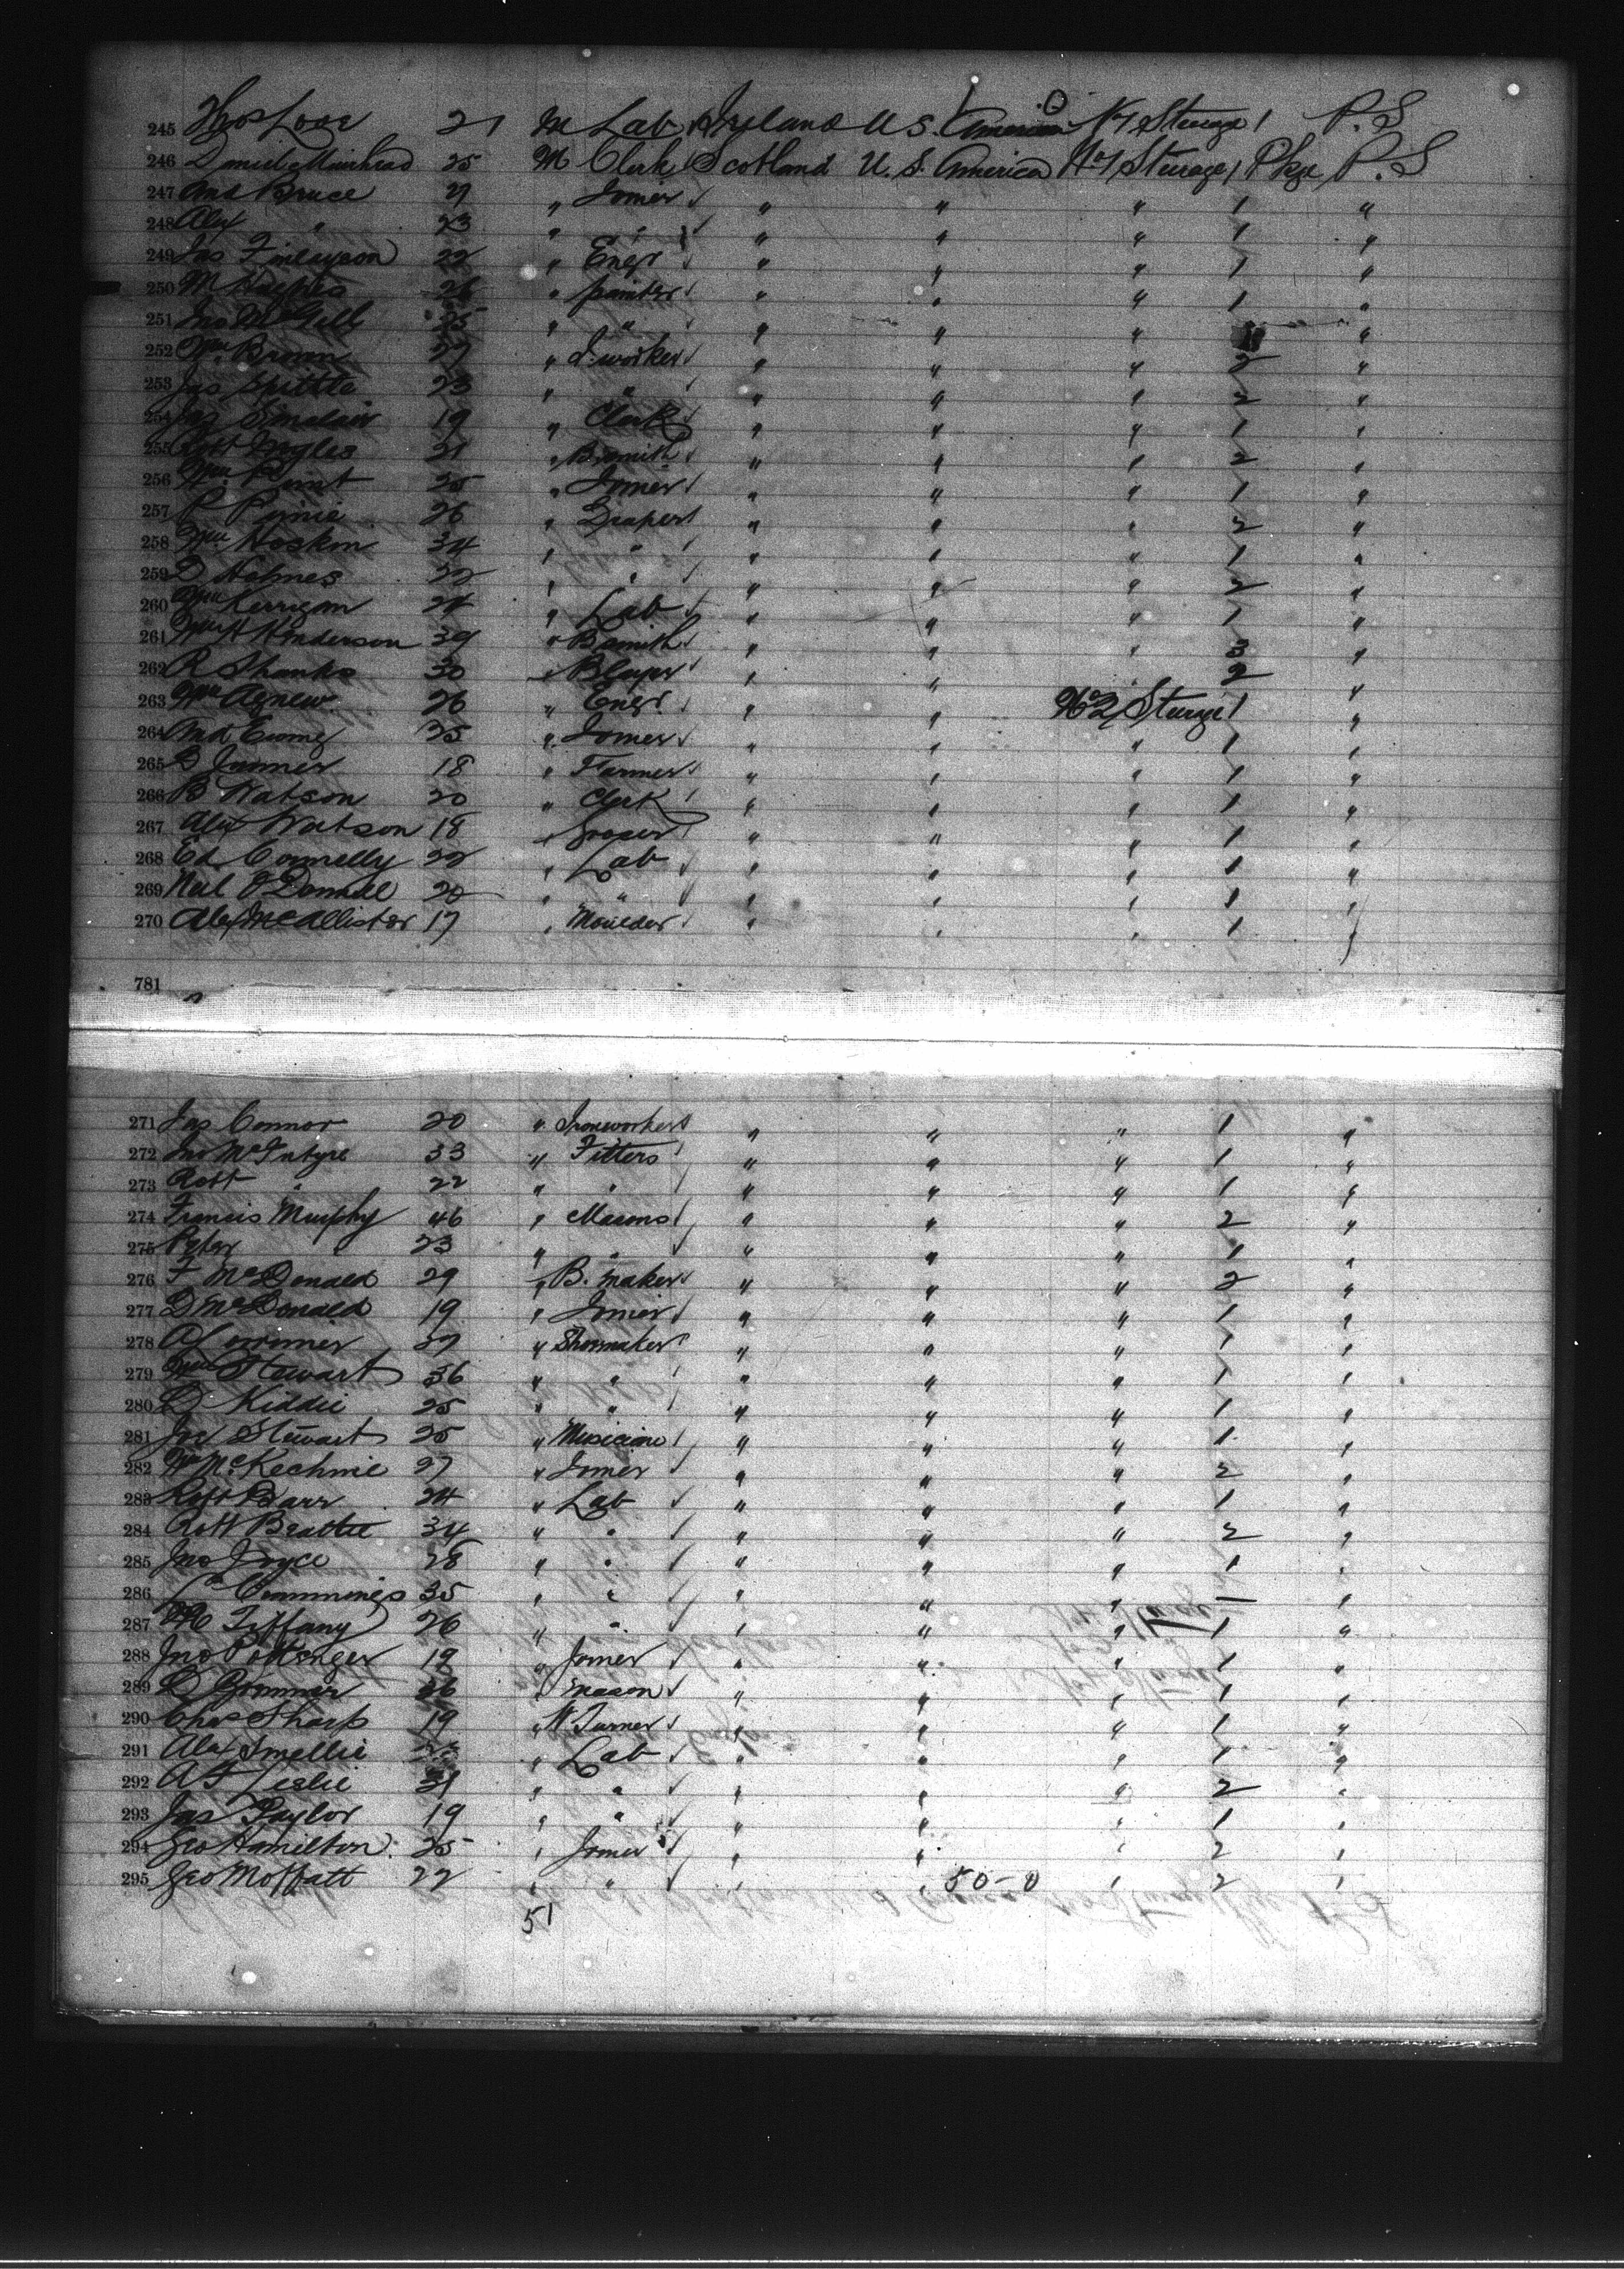 245 Thos Love 21 M Lab Ireland U S. America No 1 Steerage 1 P. S
246 Daniel Muirhead 25 M Clerk Scotland U. S. America No 1 Steerage 1 Pkge P. S
247 And Bruce 27 " Joiner " " " 1 "
248 Alex " 23 " " " " " 1 "
249 Jas Finlayson 22 " Engr " " " 1 "
250 M Hughes 26 " painter " " " 1 "
251 Jno McGill 25 " " " " " "
252 Wm Brown 27 " I. worker " " " 2 "
253 Jas Spittle 23 " " " " " 2 "
254 Sinclair 19 " Clerk " " " 1 "
255 Robt Myles 21 " B. smith " " " 2 "
256 Wm 25 " Joiner " " " 1 "
257 P Pirnie 26 " Draper " " " 2 "
258 Wm Hoskin 34 " " " " " 1 "
259 D Holmes 22 " " " " " 2 "
260 Wm Kerrigan 24 " Lab " " " 1 "
261 Wm H Henderson 39 " B smith " " " 3 "
262 R Shanks 30 " B layer " " 2
263 Wm Agnew 26 " Engr " " No 2 Steerage 1 "
264 And Ewing 25 " Joiner " " " 1 "
265 18 " Farmer " " " 1 "
266 B Watson 20 " Clerk " " " 1 "
267 Alex Watson 18 " Grocer " " " 1 "
268 Ed Connelly 22 " Lab " " " 1 "
269 Neil O'Donnell 20 " " " " " 1 "
270 Alex McAllister 17 " Moulder " " " 1 "
781
271 Jas Connor 20 " Ironworker " " " 1 "
272 Jno McIntyre 33 " Fitters " " " 1 "
273 Robt " 22 " " " " " 1 "
274 Francis Murphy 46 " Masons " " " 2 "
275 Peter " 23 " " " " " 1 "
276 F McDonald 29 " B. maker " " " 2 "
277 D McDonald 19 " Joiner " " " 1 "
278 A Lorrimer 27 " Shoemaker " " " 1 "
279 Wm Stewart 36 " " " " " 1 "
280 D Kiddie 25 " " " " " 1 "
281 Stewart 25 " Musician " " " 1 "
282 Wm McKechnie 27 " Joiner " " " 2 "
283 Robt Barr 24 " Lab " " " 1 "
284 Robt Beattie 34 " " " " " 2 "
285 Jno Joyce 28 " " " " " 1 "
286 Cummings 35 " " " " " — "
287 M Tiffany 26 " " " " " 1 "
288 Jno Pottenger 19 " Joiner " " " 1 "
289 36 " Mason " " " 1 "
290 Chas Sharp 19 " Turner " " " 1 "
291 Alex Smellie " Lab " " " 1 "
292 A F Leslie 31 " " " " " 2 "
293 Jas Taylor 19 " " " " " 1 "
294 Geo Hamilton 25 " Joiner " " " 2 "
295 Geo Moffatt 22 " " " " 50-0 " 2 "
51